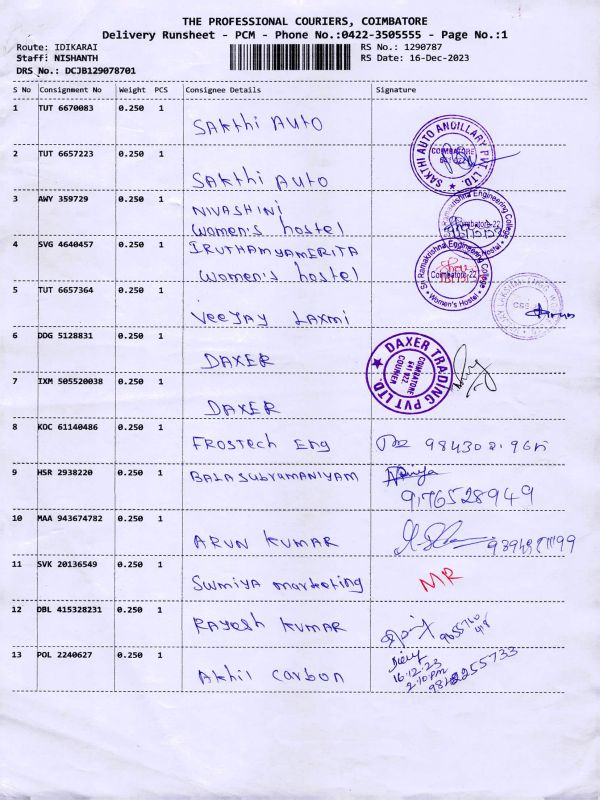 THE PROFESSIONAL COURIERS, COIMBATORE
Delivery Runsheet - PCM - Phone No.:0422-3505555 - Page No.:1
Route: IDIKARAI RS No.: 1290787
Staff: NISHANTH RS Date: 16-Dec-2023
DRS No.: DCJB129078701
S No Consignment No Weight PCS Consignee Details Signature
1 TUT 6670083 0.250 1
SAKthi AUTO
SAKTHI AUTO ANCILLARY PVT LTD. COIMBATORE
2 TUT 6657223 0.250 1
SAKthi AUTO
3 AWY 359729 0.250 1 NIVASHINI
women's hostel
Sri Ramakrishna Engineering College Coimbatore-22
4 SVG 4640457 0.250 1 IRUTHAMYAMERITA
women's hostel
Sri Ramakrishna Engineering College Coimbatore-22 Women's Hostel
5 TUT 6657364 0.250 1
VEEJAY LAXMI
6 DDG 5128831 0.250 1
DAXER
DAXER TRADING PVT LTD. COIMBATORE 641 022. COURIER
7 IXM 505520038 0.250 1
DAXER
8 KOC 61140486 0.250 1
FROSTECH Eng
9 HSR 2938220 0.250 1 BALASUBYUMANIYAM
9176528949
10 MAA 943674782 0.250 1
ARUN KUMAR
11 SVK 20136549 0.250 1
Sumiya marketing MR
12 DBL 415328231 0.250 1
RAYesh KUMAR
13 POL 2240627 0.250 1
Akhil carbon
16.12.23
2.10 PM